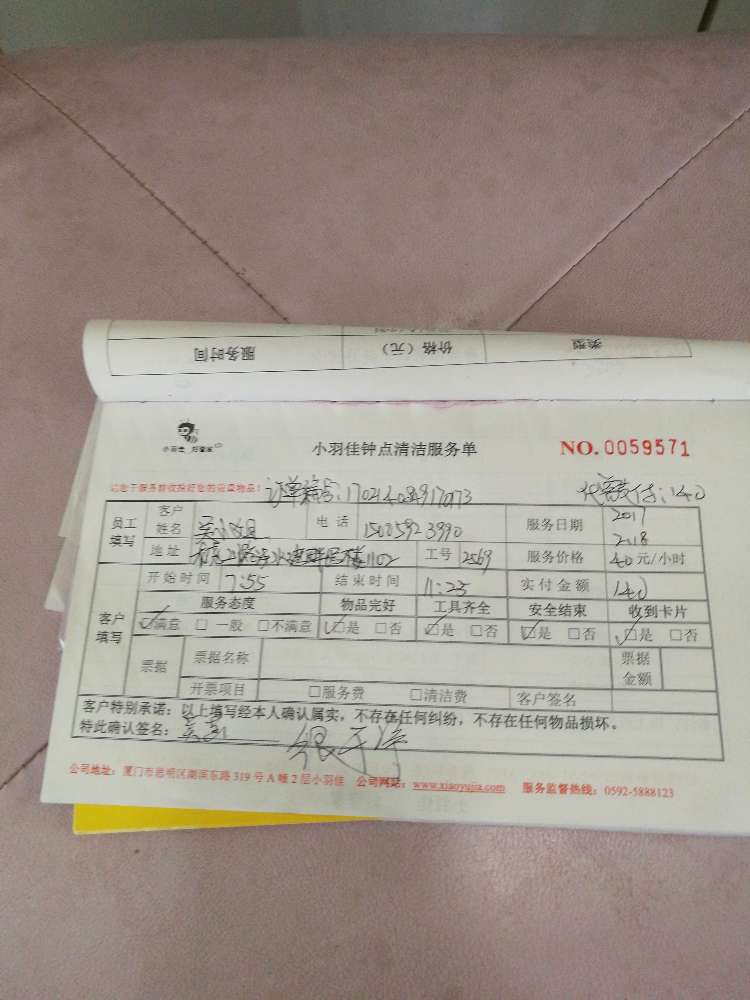 服务时间 价格（元） 类型
小羽佳 好管家
小羽佳钟点清洁服务单
NO. 0059571
请您于服务前收拾好您的贵重物品！
订单编号：
:140
员工填写 客户姓名 吴小姐 电话 15005923990 服务日期 2017 2.18
地址 1102 工号 2569 服务价格 40 元/小时
客户填写 开始时间 7:55 结束时间 11:25 实付金额 140
服务态度 物品完好 工具齐全 安全结束 收到卡片
☑满意 □一般 □不满意 ☑是 □否 ☑是 □否 ☑是 □否 ☑是 □否
票据 票据名称 票据金额
开票项目 □服务费 □清洁费 客户签名
客户特别承诺：以上填写经本人确认属实，不存在任何纠纷，不存在任何物品损坏。
特此确认签名： 很干净
公司地址：厦门市思明区湖滨东路 319 号 A 幢 2 层小羽佳 公司网站：www.xiaoyujia.com 服务监督热线：0592-5888123